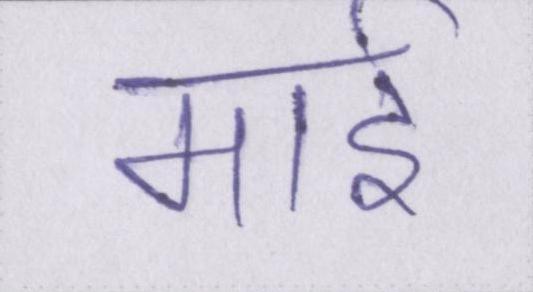 माई